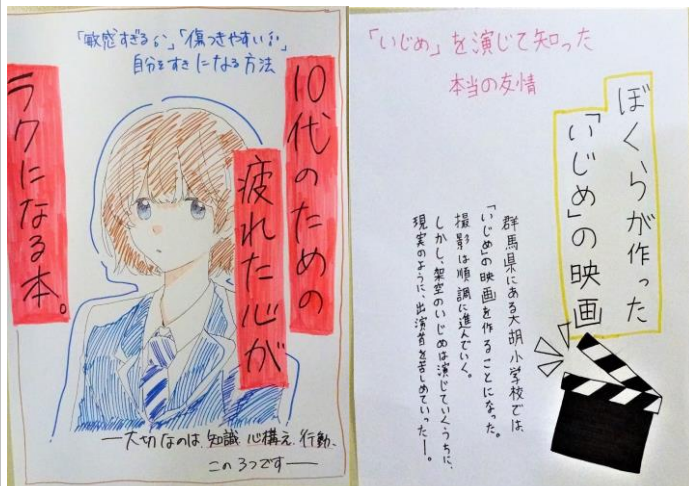 「敏感すぎる」「傷つきやすい」
自分をすきになる方法
10代のための
疲れた心が
ラクになる本。
―大切なのは、知識、心構え、行動、
この3つです―
「いじめ」を演じて知った
本当の友情
ぼくらが作った
「いじめ」の映画
群馬県にある大胡小学校では、
「いじめ」の映画を作ることになった。
撮影は順調に進んでいく。
しかし、架空のいじめは演じていくうちに、
現実のように、出演者を苦しめていった―。